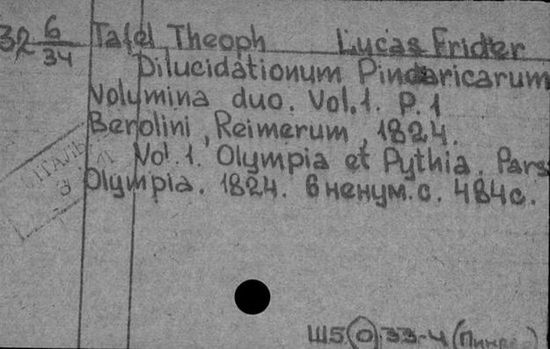 32 6/34 Tafel Theoph Lucas Frider
Dilucidationum Pindaricarum
Volumina duo. Vol. 1. P. 1
Berolini, Reimerum, 1824.
Vol. 1. Olympia et Pythia. Pars
Olympia. 1824. 6 ненум. с. 484 с.
Ш5(0)33-4 (Пинда